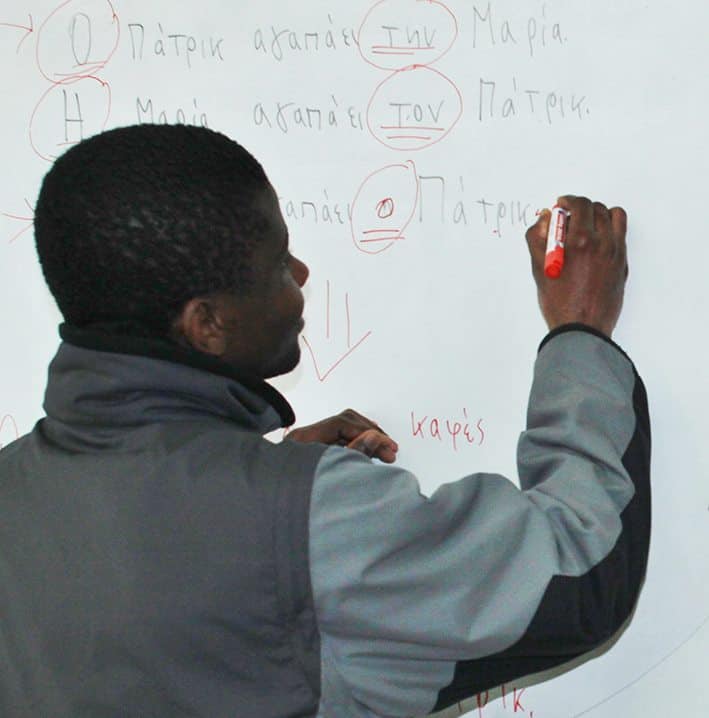 Ο Πάτρικ αγαπάει την Μαρία.
Η Μαρία αγαπάει τον Πάτρικ.
ο Πάτρικ
καφές